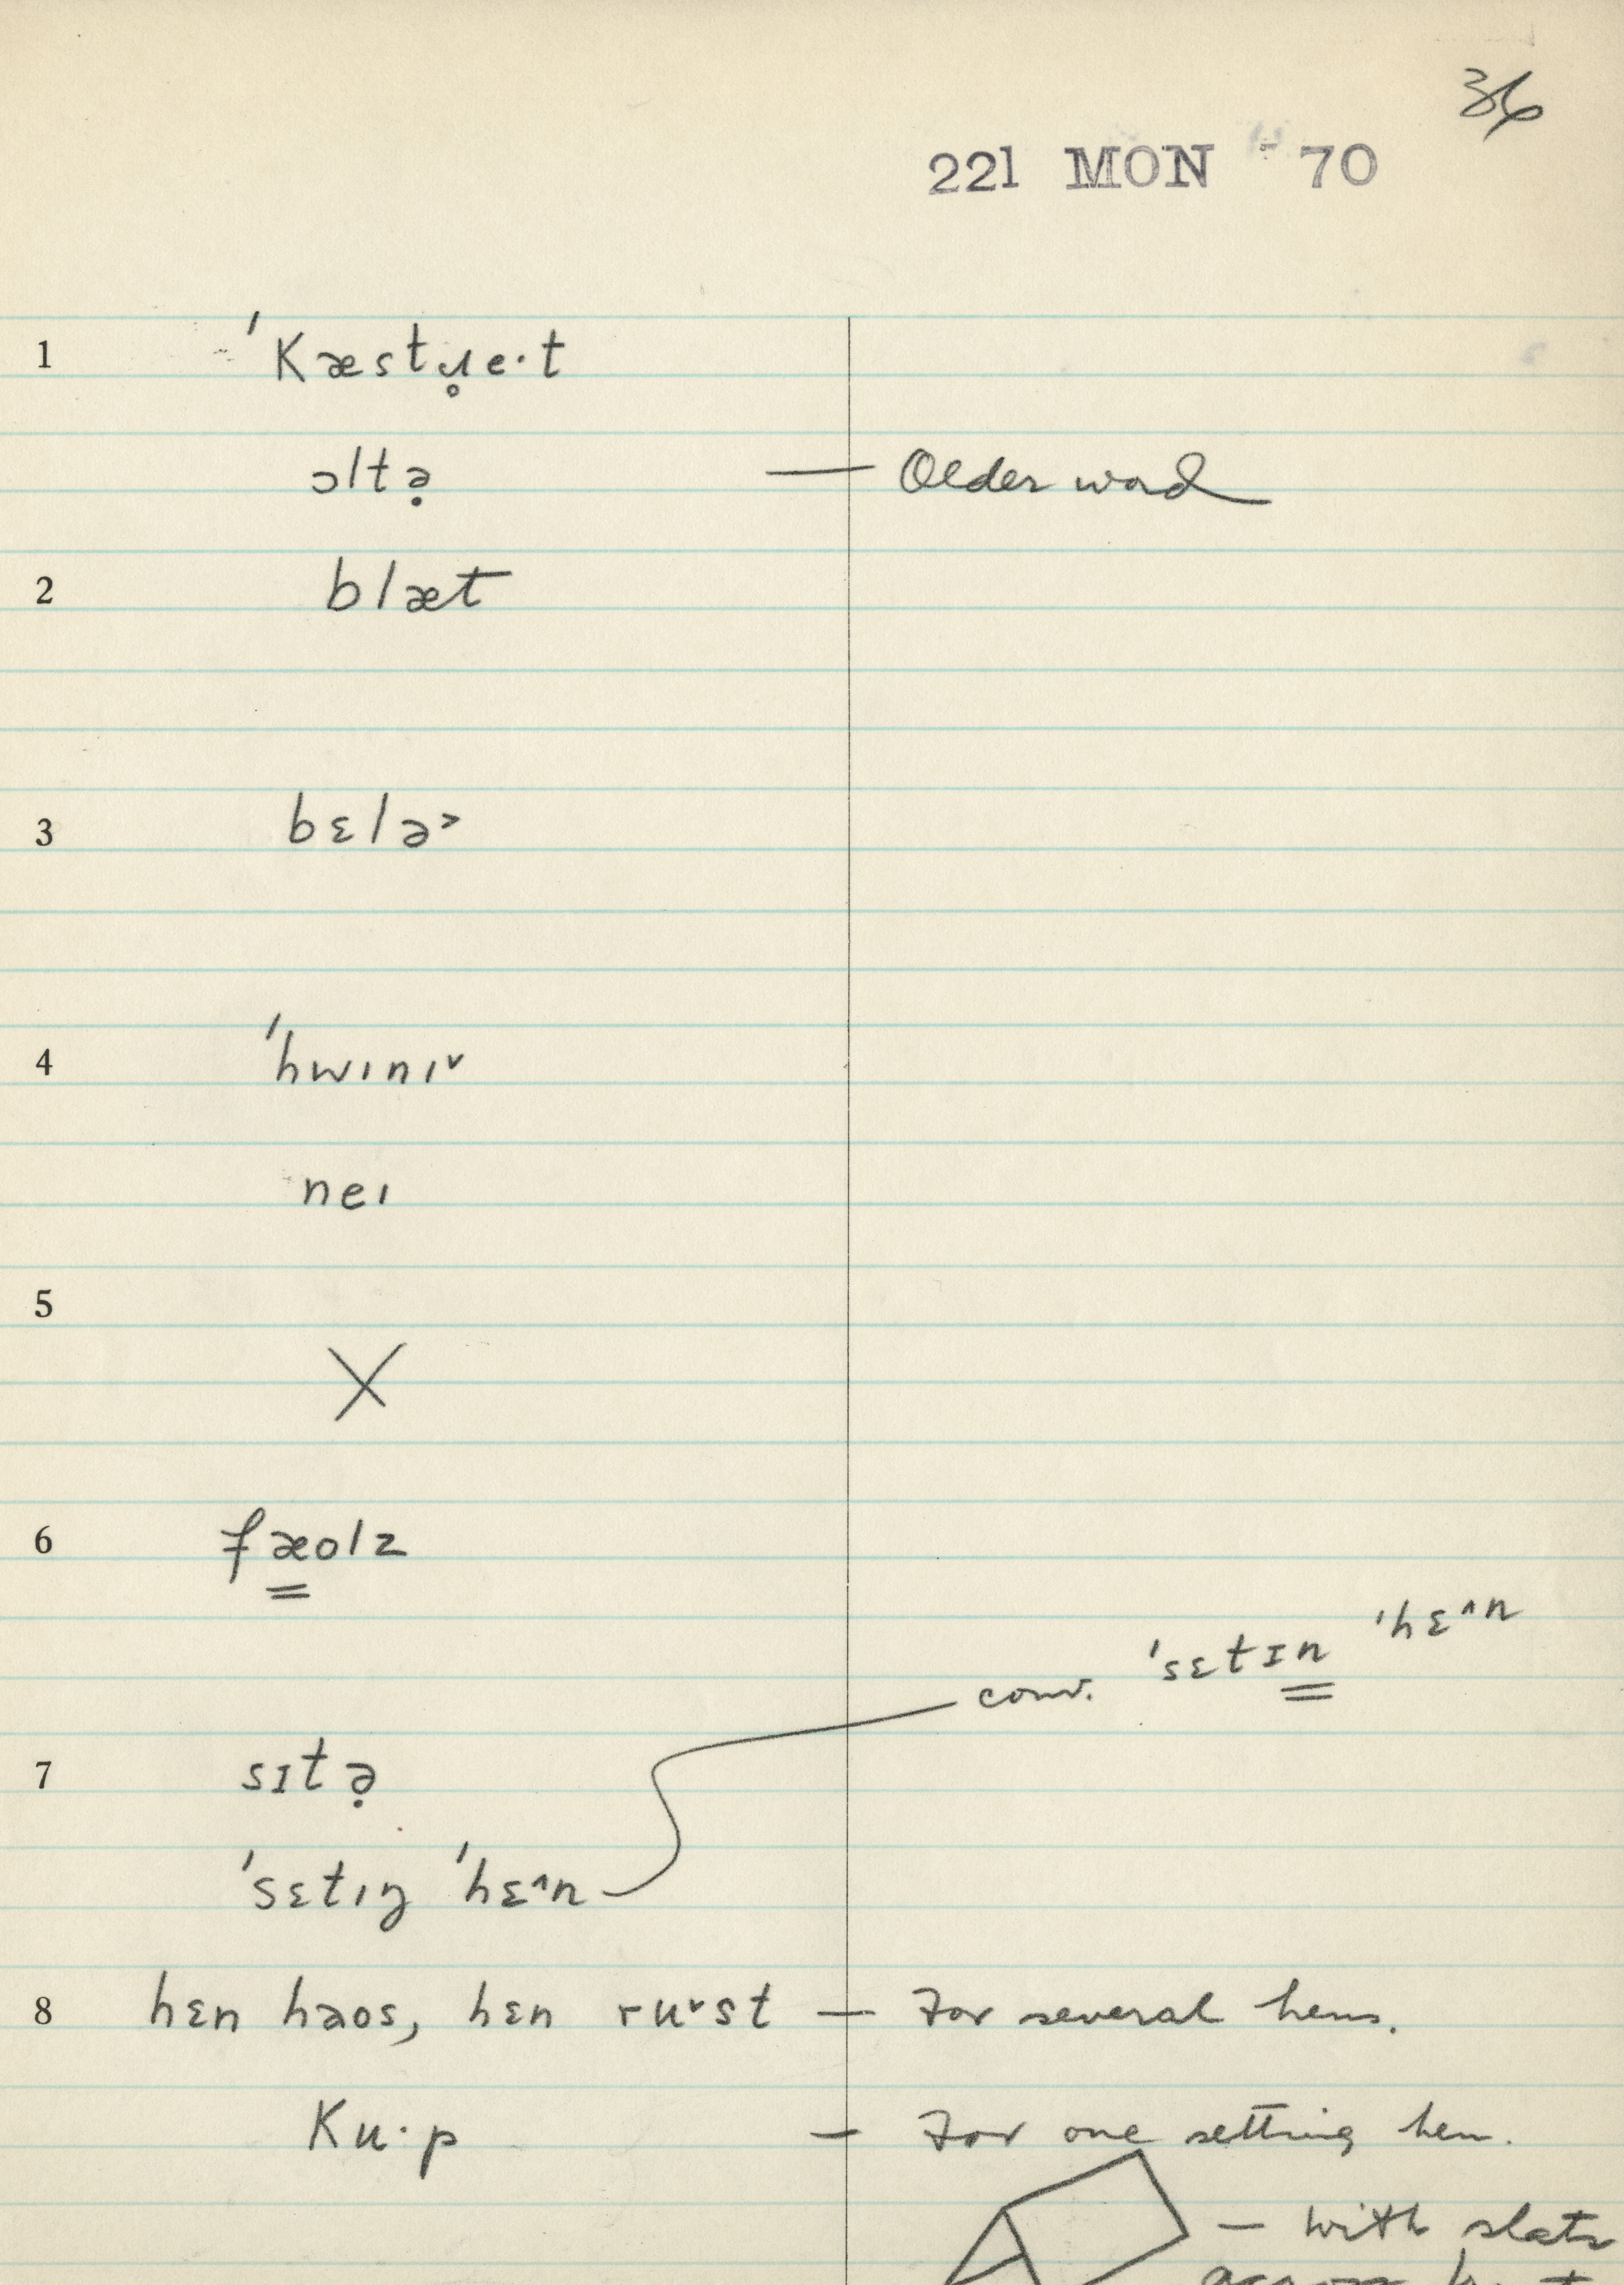 36
221 MON 70
1 ˈKæstɹ̥e·t
ɔltə̣ — Older word
2 blæt
3 bɛlə˃
4 ˈhwɪnɪ˅
neɪ
5
X
6 fæ͇olz
conv. ˈsɛtɪn͇ ˈhɛ^n
7 sɪtə̣
ˈsɛtɪŋ ˈhɛ^n
8 hɛn haos, hɛn ru˅st — For several hens.
Ku·p — For one setting hen.
— with slats
across